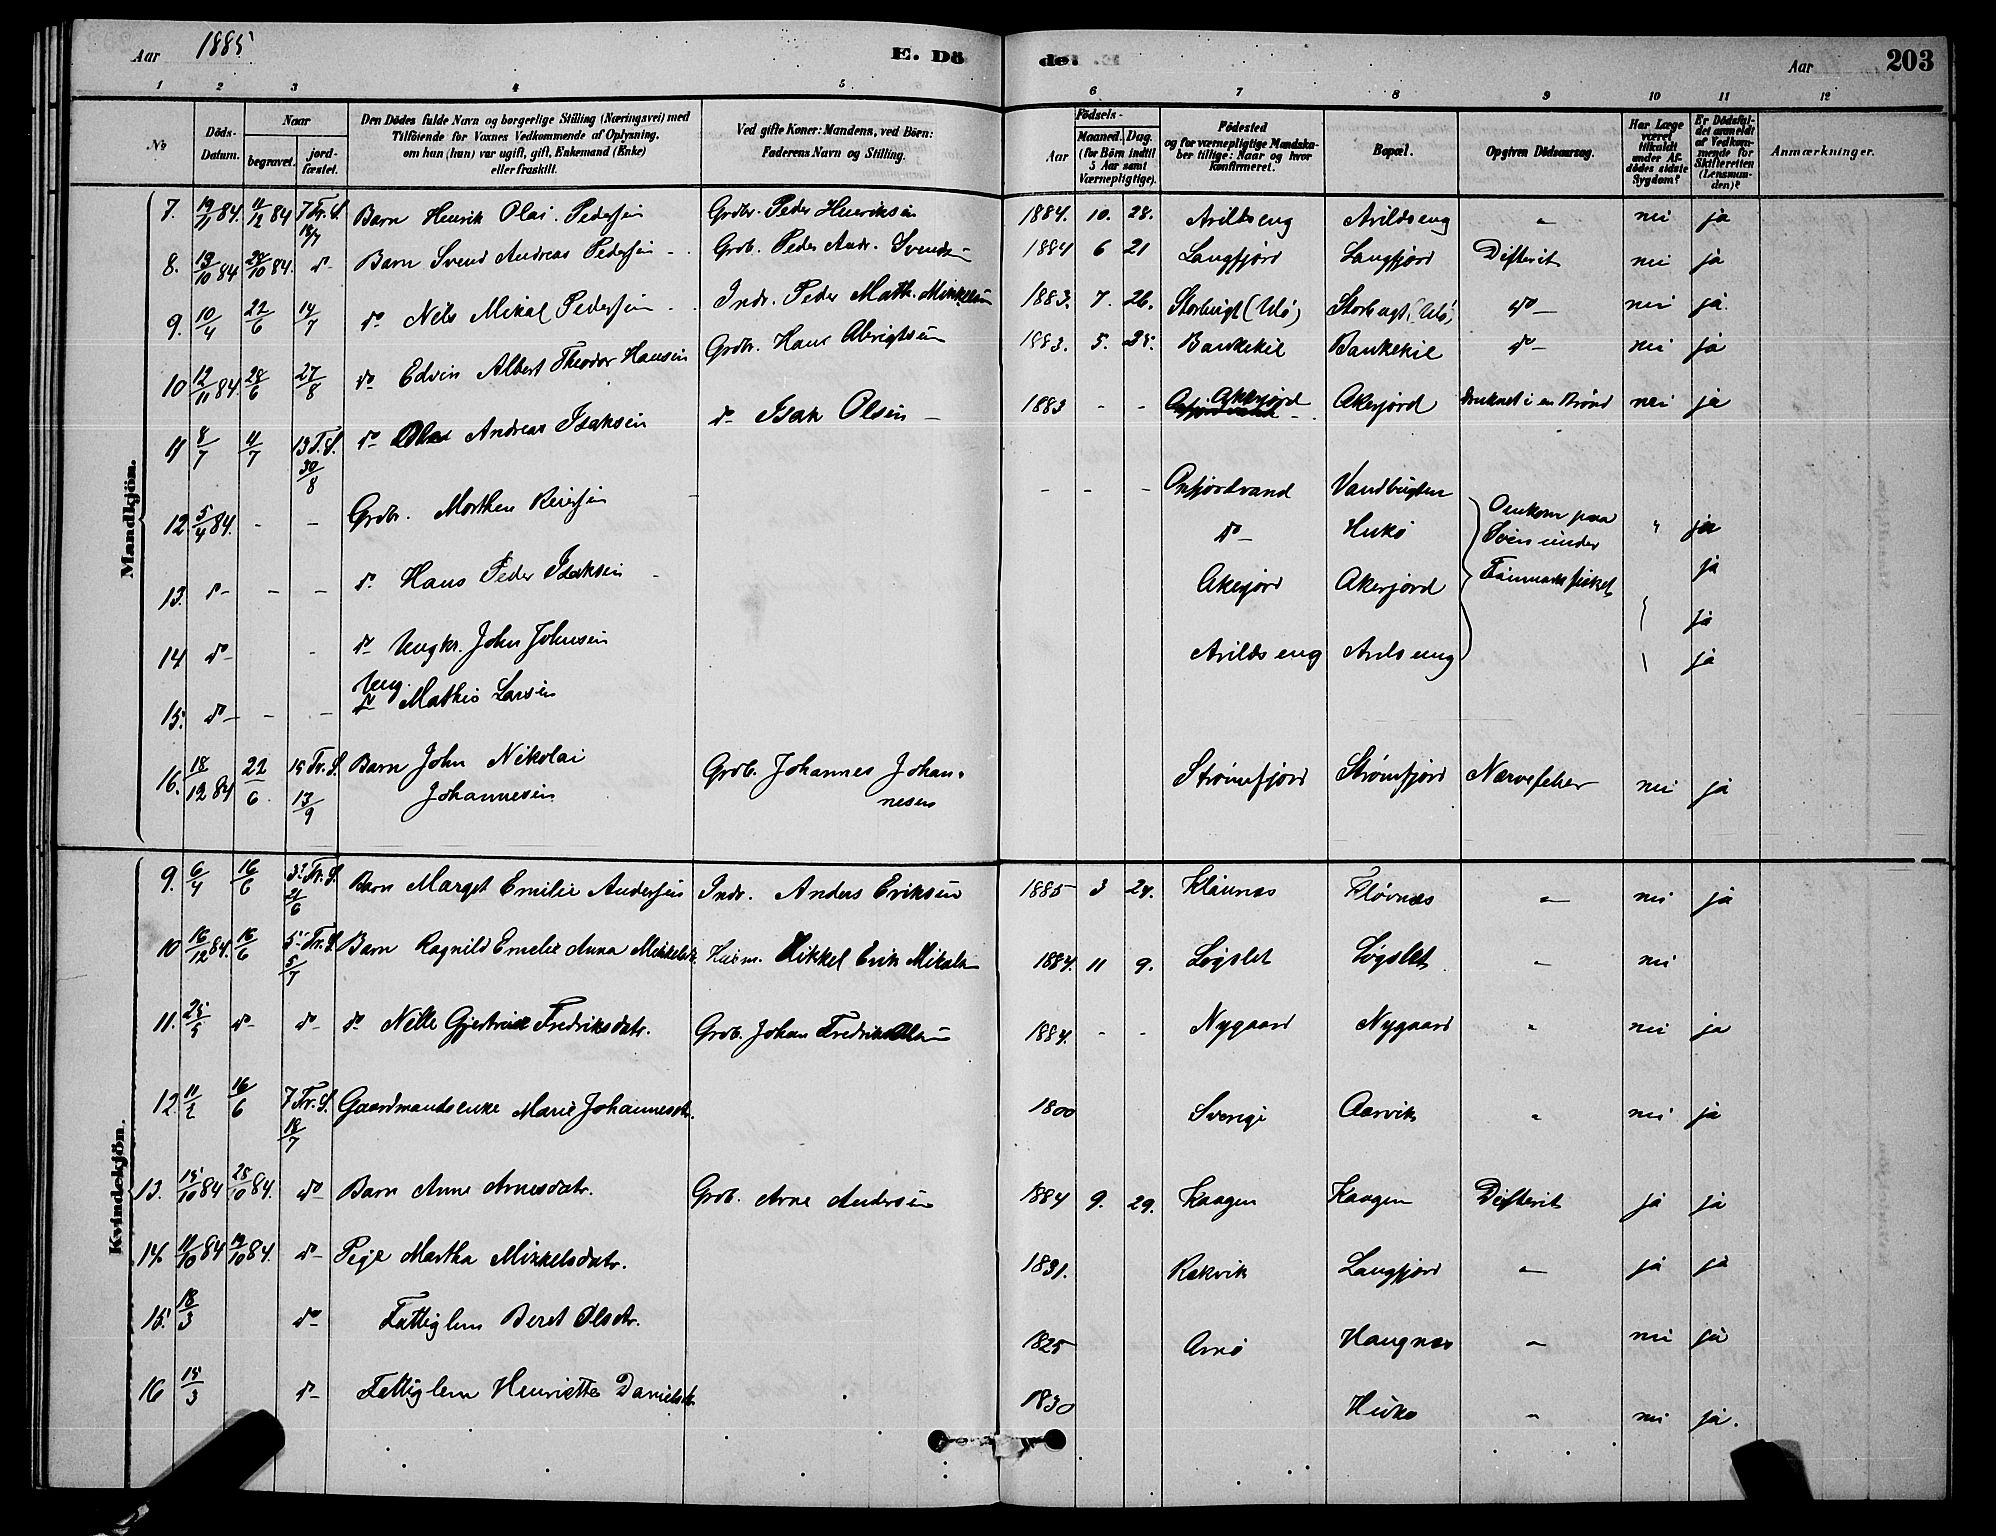 Aar 1885 E. Döde. Aar 203
1 2 3 4 5 6 7 8 9 10 11 12
No
Döds-Datum.
Naar
begravet.
jord-fæstet.
Den Dödes fulde Navn og borgerlige Stilling (Næringsvei) med
Tilföiende for Voxnes Vedkommende af Oplysning,
om han (hun) var ugift, gift, Enkemand (Enke)
eller fraskilt.
Ved gifte Koner: Mandens, ved Börn:
Faderens Navn og Stilling.
Födsels-
Aar
Maaned. Dag.
(for Börn indtil
5 Aar samt
Værnepligtige).
Födested
og for værnepligtige Mandska-
ber tillige: Naar og hvor
konfirmeret.
Bopæl.
Opgiven Dödsaarsag.
Har Læge
været
tilkaldt
under Af-
dödes sidste
Sygdom?
Er Dödsfal-
det anmeldt
af Vedkom-
mende for
Skifteretten
(Lensman-
den)?
Anmærkninger.
Mandkjön.
7. 19/11 84. 4/12 84 7 Tr. S. 18/7 Barn Henrik Olai Pedersen Grdbr. Peder Henriksen 1884. 10. 28. Arildseng Arildseng " nei ja
8. 19/10 84 28/10 84. do Barn Svend Andreas Pedersen - Grdb. Peder Andr. Svends 1884 6 21 Langfjord Langfjord Difterit nei ja
9. 10/4 22/6 14/7 do Nils Mikal Pedersen Indr. Peder Math. Mikkelsen 1883. 7. 26. Storbugt (Ulø) Storbugt (Ulø) do nei ja.
10 12/11 84 28/6 27/8 do Edvin Albert Theodor Hansen Grdbr. Hans Abrigtsen 1883. 5. 25. Bankekil Bankekil do nei ja
11 8/7 11/7 13 T. S. 30/8 do Ola Andreas Isaksen do Isak Olsen 1883 - - Akerjord Akerjord druknet i en Brønd nei ja
12 5/4 84. - - Grdbr. Morthen Reiersen - - - Oxfjordvand Vandbugten Omkom paa " ja
13. do - - do Hans Peder Isaksen do Hukø Søen under ja
14 do - do Ungkr. John Johnsen Akerjord Akerjord Finmarksfisket ja
15. do - - Ung. do Mathis Larsen Arildseng Arildseng ja
16. 18/12 84 22/6 15 Tr. S. 13/9 Barn John Nikolai Grdb. Johannes Johan-
Johannesen nesen Strømfjord Strømfjord Nervefeber nei ja
Kvindekjön.
9. 6/4 16/6 3 Tr. S. 21/6 Barn Marget Emilie Andersen Indr. Anders Eriksen 1885 3 24. Kløvnæs Kløvnæs " nei ja
10 16/12 84. 16/6 5 Tr. S. 5/7 Barn Ragnild Emelie Anna Mikkelsdtr. Husm. Mikkel Erik Mikalsen 1884. 11 9. Løgslet Løgslet " nei
11. 25/5 do do do Nelle Gjertrud Fredriksdatr. Grdb. Johan Fredrik Olsen 1884. - - Nygaard Nygaard " nei ja
12 11/2 16/6 7 Tr. S. 18/7 Gaardmandsenke Marie Johannesdtr. 1800 Sverige Aarvik " nei ja
13. 15/10 84 28/10 84. do Barn Anne Arnesdatr. Grdb. Arne Andersen 1884 9. 29. Kaagen Kaagen Difterit ja ja
14. 11/10 84 19/10 84. do Pige Martha Mikkelsdatr. 1831. Rakvik Langfjord " ja ja
15. 18/3 do Fattiglem Beret Olsdtr. 1825 Arnø Haugnæs " nei ja
16 15/3 do Fattiglem Henriette Danielsdtr. 1830 Hukø " nei ja.